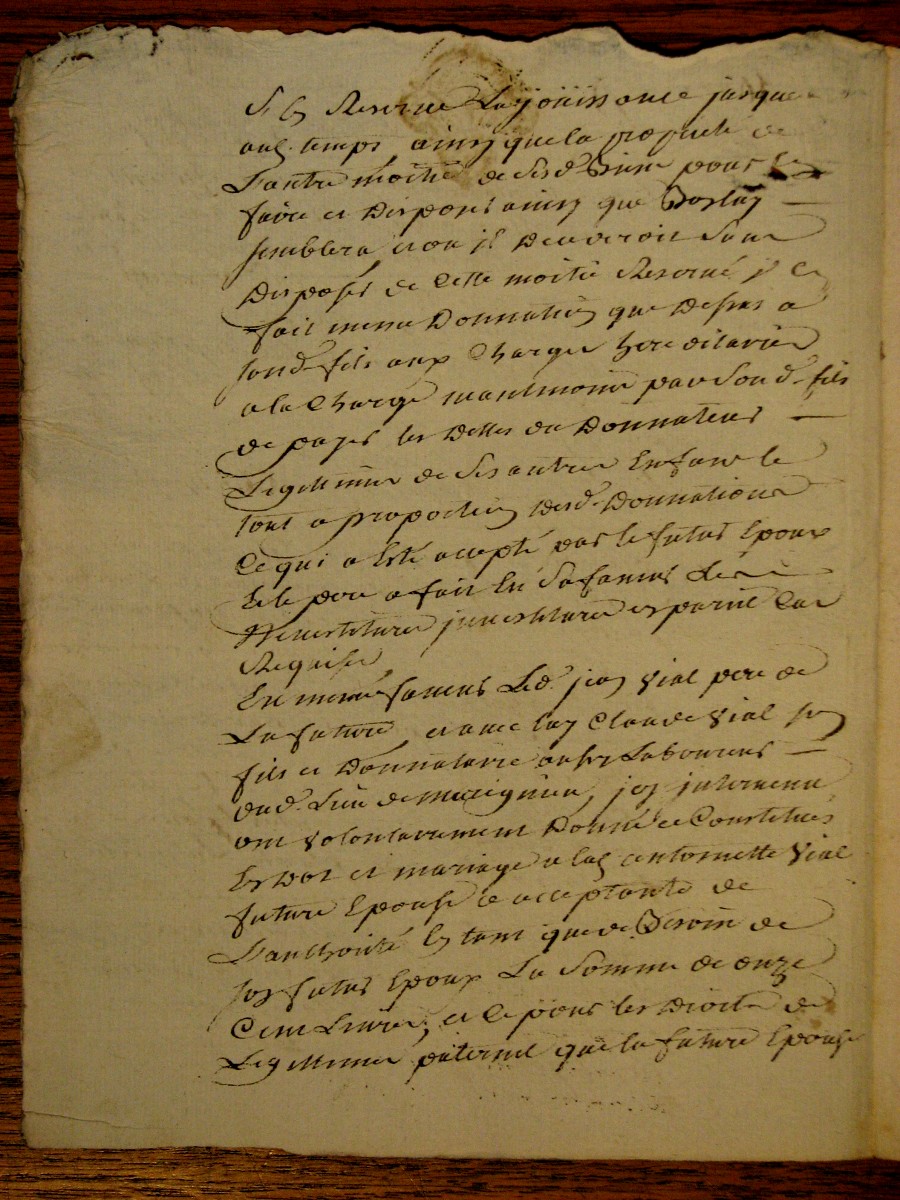 Se Reserve La joüissance jusque
aud. temps, ainsy que la propriete de
L'autre moitié de Sesd. Biens pour En
faire et Disposer ainsy que Bon luy
semblera, et ou jl Decederoit Sans
Disposer de Cette moitié Reservé, jl En
fait meme Donnation que Dessus a
sond. fils aux Charges hereditaires
a la Charge neantmoins par Sond. fils
de payer les dettes du Donnateur
Legittimer de Ses autres Enfans le
tout a proportion desd. Donnations
Ce qui a Esté accepté par le futur Epoux
Et le pere a fait En Sa faveur Les
Revestitures jnvestitures en pareil Cas
Requises,
En meme faveur Led. jean Vial pere de
La future, et avec luy Claude Vial son
fils et Donnataire aussy Laboureur
dud. Lieu de jcy jntervenu
ont volontairement Donné et Constitués
En Dot et mariage a lad. antoinette Vial
future Epouse Ce acceptante de
L'authorité En tant que de Besoin de
son futur Epoux La Somme de onze
Cent Livres, et Ce pour les Droits de
Legittime paternel que la future Epouse